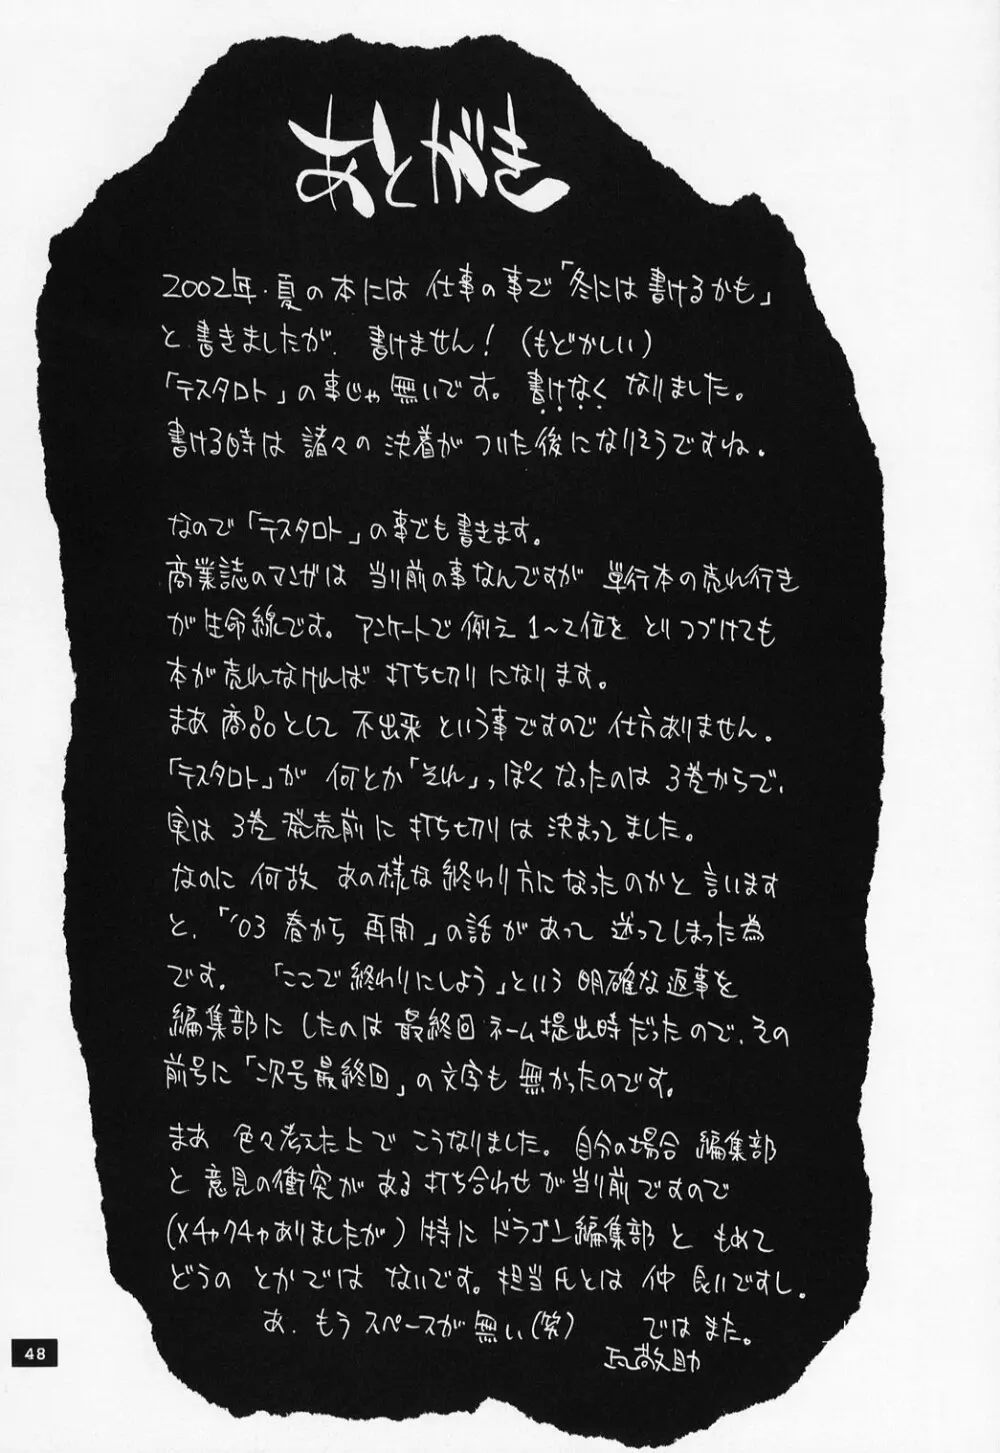 あとがき
2002年・夏の本には 仕事の事で「冬には書けるかも」
と、書きましたが、書けません！（もどかしい）
「テスタロト」の事じゃ無いです。書けなく なりました。
書ける時は 諸々の 決着が ついた後になりそうですね。
なので「テスタロト」の事でも書きます。
商業誌のマンガは 当り前の事なんですが 単行本の売れ行き
が生命線です。アンケートで例え 1〜2位を とりつづけても
本が売れなければ 打ち切りになります。
まあ 商品として 不出来 という事ですので 仕方ありません。
「テスタロト」が 何とか「それ」っぽくなったのは 3巻からで、
実は 3巻 発売前に 打ち切りは 決まってました。
なのに 何故 あの様な終わり方になったのかと 言います
と、「'03 春から 再開」の話があって 迷ってしまった為
です。「ここで終わりにしよう」という 明確な返事を
編集部に したのは 最終回 ネーム提出時だったので、その
前号に「次号最終回」の文字も 無かったのです。
まあ 色々考えた上で こうなりました。自分の場合 編集部
と 意見の衝突が ある 打ち合わせが当り前ですので
（メチャクチャありましたが）特に ドラゴン編集部と もめて
どうの とかでは ないです。担当氏とは 仲 良いですし。
あ、もう スペースが無い（笑） ではまた。
瓦敬助
48